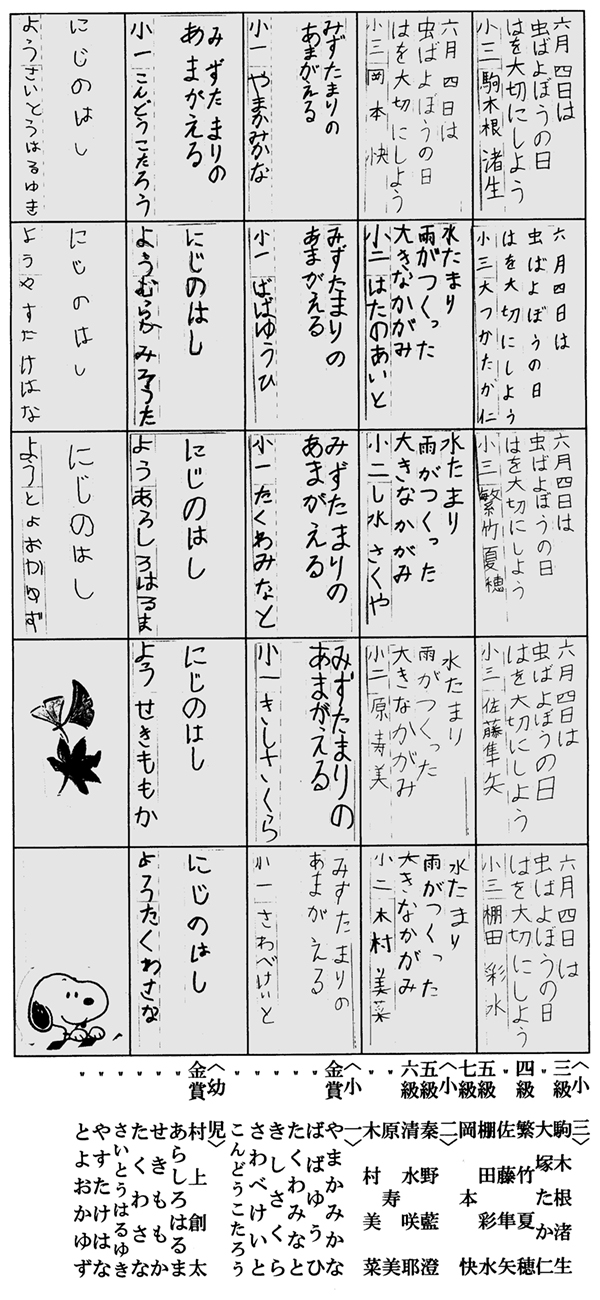 六月四日は
虫ばよぼうの日
はを大切にしよう
小三駒木根渚生
六月四日は
虫ばよぼうの日
はを大切にしよう
小三岡本快
みずたまりの
あまがえる
小一やまかみかな
みずたまりの
あまがえる
小一こんどうこたろう
にじのはし
ようさいとうはるゆき
六月四日は
虫ばよぼうの日
はを大切にしよう
小三大つかたか仁
水たまり
雨がつくった
大きなかがみ
小二はたのあいと
みずたまりの
あまがえる
小一ばばゆうひ
にじのはし
ようむらかみそうた
にじのはし
ようやすたけはな
六月四日は
虫ばよぼうの日
はを大切にしよう
小三繁竹夏穂
水たまり
雨がつくった
大きなかがみ
小二し水さくや
みずたまりの
あまがえる
小一たくわみなと
にじのはし
ようあらしろはるま
にじのはし
ようとよおかゆず
六月四日は
虫ばよぼうの日
はを大切にしよう
小三佐藤隼矢
水たまり
雨がつくった
大きなかがみ
小二原寿美
みずたまりの
あまがえる
小一きしさくら
にじのはし
ようせきももか
六月四日は
虫ばよぼうの日
はを大切にしよう
小三棚田彩水
水たまり
雨がつくった
大きなかがみ
小二木村美菜
みずたまりの
あまがえる
小一さわべけいと
にじのはし
ようたくわさな
〈小三〉
三級 駒木根渚生
〃 大塚たか仁
四級 繁竹夏穂
〃 佐藤隼矢
五級 棚田彩水
七級 岡本快
〈小二〉
五級 秦野藍澄
六級 清水咲耶
〃 原寿美
〃 木村美菜
〈小一〉
金賞 やまかみかな
〃 ばばゆうひ
〃 たくわみなと
〃 きしさくら
〃 さわべけいと
〃 こんどうこたろう
〈幼児〉
金賞 村上創太
〃 あらしろはるま
〃 せきももか
〃 たくわさな
〃 さいとうはるゆき
〃 やすたけはな
〃 とよおかゆず